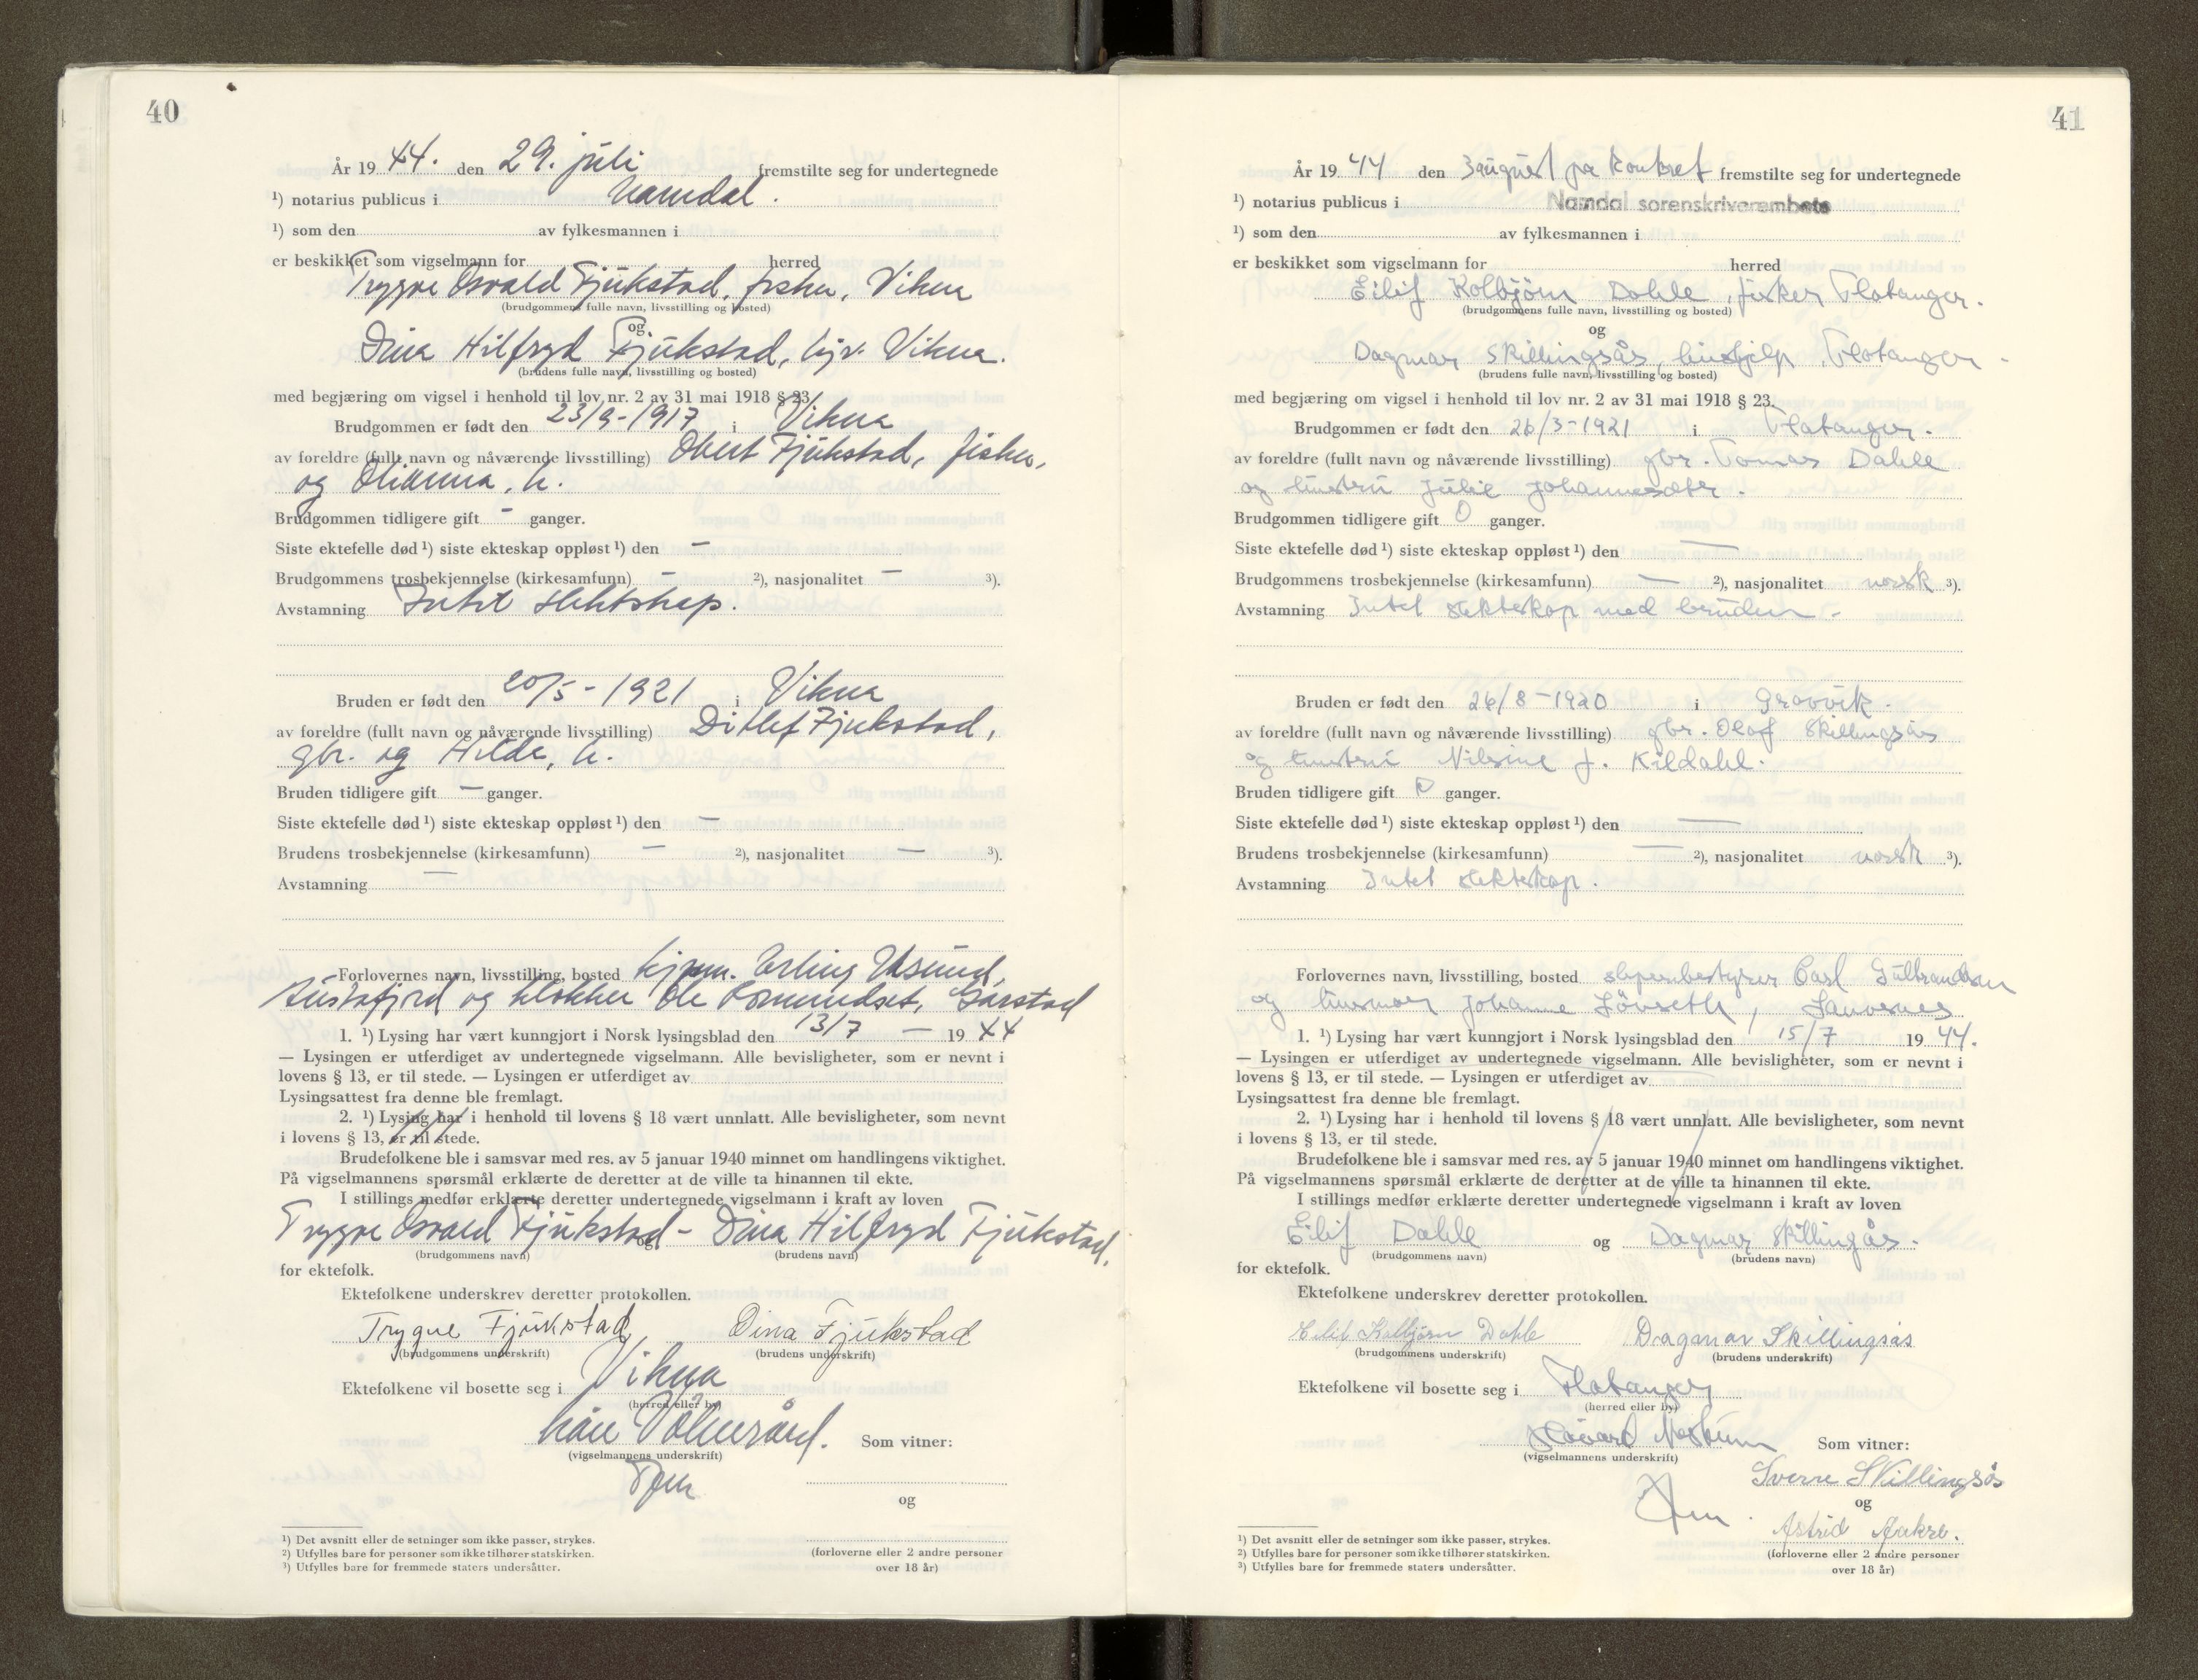 40
År 19 44. den 29. juli fremstilte seg for undertegnede
¹) notarius publicus i Namdal.
¹) som den av fylkesmannen i
er beskikket som vigselmann for herred
Trygve Osvald Fjukstad, fisker, Vikna
(brudgommens fulle navn, livsstilling og bosted)
og
Dina Hilfryd Fjukstad, hjv. Vikna.
(brudens fulle navn, livsstilling og bosted)
med begjæring om vigsel i henhold til lov nr. 2 av 31 mai 1918 § 23.
Brudgommen er født den 23/9-1917 i Vikna
av foreldre (fullt navn og nåværende livsstilling) Obert Fjukstad, fisker,
og Olianna, h.
Brudgommen tidligere gift - ganger.
Siste ektefelle død ¹) siste ekteskap oppløst ¹) den —
Brudgommens trosbekjennelse (kirkesamfunn) — ²), nasjonalitet — ³).
Avstamning Intet slektskap.
Bruden er født den 20/5-1921 i Vikna
av foreldre (fullt navn og nåværende livsstilling) Ditlef Fjukstad,
gbr. og Hilda, h.
Bruden tidligere gift — ganger.
Siste ektefelle død ¹) siste ekteskap oppløst ¹) den —
Brudens trosbekjennelse (kirkesamfunn) — ²), nasjonalitet — ³).
Avstamning —
Forlovernes navn, livsstilling, bosted kjpm. Erling Ulsund,
Austafjord og klokker Ole Romundset, Garstad
1. ¹) Lysing har vært kunngjort i Norsk lysingsblad den 13/7 — 19 44
— Lysingen er utferdiget av undertegnede vigselmann. Alle bevisligheter, som er nevnt i
lovens § 13, er til stede. — Lysingen er utferdiget av
Lysingsattest fra denne ble fremlagt.
2. ¹) Lysing har i henhold til lovens § 18 vært unnlatt. Alle bevisligheter, som nevnt
i lovens § 13, er til stede.
Brudefolkene ble i samsvar med res. av 5 januar 1940 minnet om handlingens viktighet.
På vigselmannens spørsmål erklærte de deretter at de ville ta hinannen til ekte.
I stillings medfør erklærte deretter undertegnede vigselmann i kraft av loven
Trygve Osvald Fjukstad - Dina Hilfryd Fjukstad,
og
(brudgommens navn) (brudens navn)
for ektefolk.
Ektefolkene underskrev deretter protokollen.
Trygve Fjukstad Dina Fjukstad
(brudgommens underskrift) (brudens underskrift)
Ektefolkene vil bosette seg i Vikna
(herred eller by)
Som vitner:
(vigselmannens underskrift)
og
¹) Det avsnitt eller de setninger som ikke passer, strykes.
²) Utfylles bare for personer som ikke tilhører statskirken.
³) Utfylles bare for fremmede staters undersåtter.
(forloverne eller 2 andre personer
over 18 år)
41
År 19 44 den 3 august på kontret fremstilte seg for undertegnede
¹) notarius publicus i Namdal sorenskriverembete
¹) som den av fylkesmannen i
er beskikket som vigselmann for herred
Eilif Kolbjörn Dahle, fisker, Flatanger.
(brudgommens fulle navn, livsstilling og bosted)
og
Dagmar Skillingsås, hushjelp, Flatanger.
(brudens fulle navn, livsstilling og bosted)
med begjæring om vigsel i henhold til lov nr. 2 av 31 mai 1918 § 23.
Brudgommen er født den 26/3-1921 i Flatanger.
av foreldre (fullt navn og nåværende livsstilling) gbr. Tomas Dahle
og hustru Julie Johannesdtr.
Brudgommen tidligere gift 0 ganger.
Siste ektefelle død ¹) siste ekteskap oppløst ¹) den —
Brudgommens trosbekjennelse (kirkesamfunn) — ²), nasjonalitet norsk ³).
Avstamning Intet slektskap med bruden.
Bruden er født den 26/8-1920 i Gravvik.
av foreldre (fullt navn og nåværende livsstilling) gbr. Olaf Skillingsås
og hustru Nilsine J. Kildahl.
Bruden tidligere gift 0 ganger.
Siste ektefelle død ¹) siste ekteskap oppløst ¹) den —
Brudens trosbekjennelse (kirkesamfunn) — ²), nasjonalitet norsk ³).
Avstamning Intet slektskap.
Forlovernes navn, livsstilling, bosted Carl Gulbrandsen
og husmor Johanne Lövseth, Lauvsnes
1. ¹) Lysing har vært kunngjort i Norsk lysingsblad den 15/7 19 44.
— Lysingen er utferdiget av undertegnede vigselmann. Alle bevisligheter, som er nevnt i
lovens § 13, er til stede. — Lysingen er utferdiget av
Lysingsattest fra denne ble fremlagt.
2. ¹) Lysing har i henhold til lovens § 18 vært unnlatt. Alle bevisligheter, som nevnt
i lovens § 13, er til stede.
Brudefolkene ble i samsvar med res. av 5 januar 1940 minnet om handlingens viktighet.
På vigselmannens spørsmål erklærte de deretter at de ville ta hinannen til ekte.
I stillings medfør erklærte deretter undertegnede vigselmann i kraft av loven
Eilif Dahle og Dagmar Skillingsås.
(brudgommens navn) (brudens navn)
for ektefolk.
Ektefolkene underskrev deretter protokollen.
Eilif Kolbjørn Dahle Dagmar Skillingsås
(brudgommens underskrift) (brudens underskrift)
Ektefolkene vil bosette seg i Flatanger
(herred eller by)
Som vitner:
(vigselmannens underskrift)
Sverre Skillingsås
og
Astrid
¹) Det avsnitt eller de setninger som ikke passer, strykes.
²) Utfylles bare for personer som ikke tilhører statskirken.
³) Utfylles bare for fremmede staters undersåtter.
(forloverne eller 2 andre personer
over 18 år)